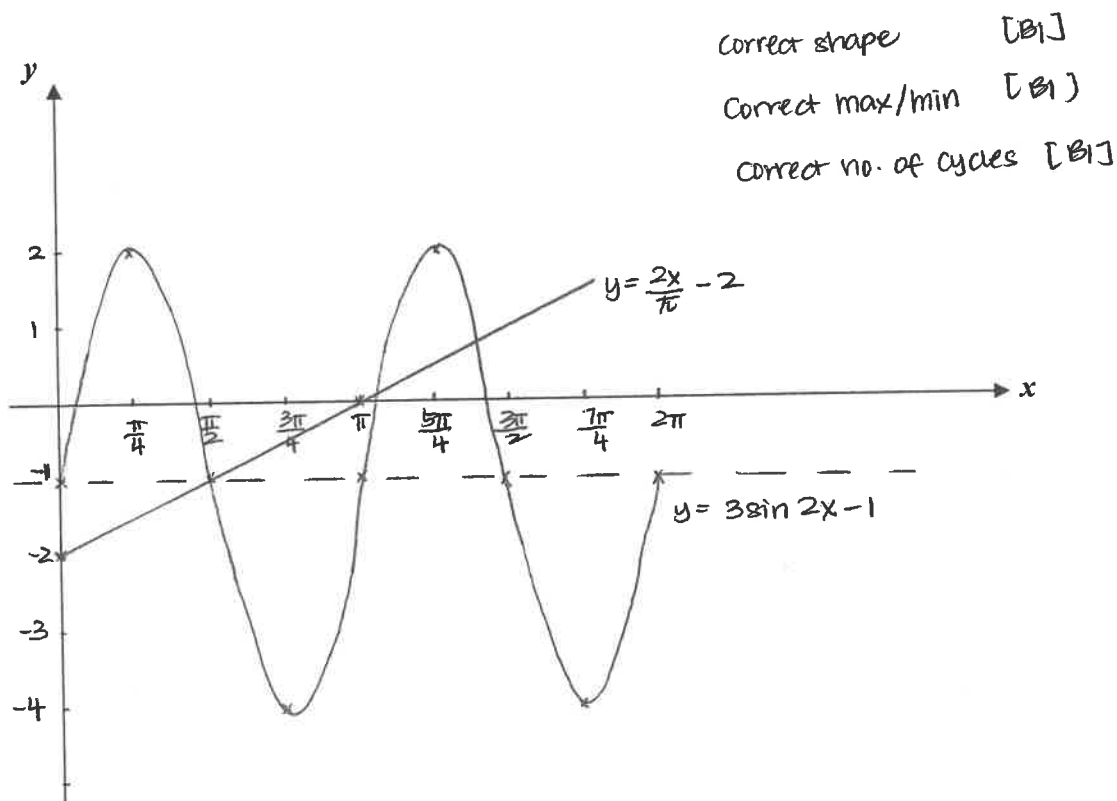 Correct shape [B1]
Correct max/min [B1]
Correct no. of cycles [B1]
y
2
y = 2x/π - 2
1
x
π/4 π/2 3π/4 π 5π/4 3π/2 7π/4 2π
-1
y = 3sin 2x - 1
-2
-3
-4